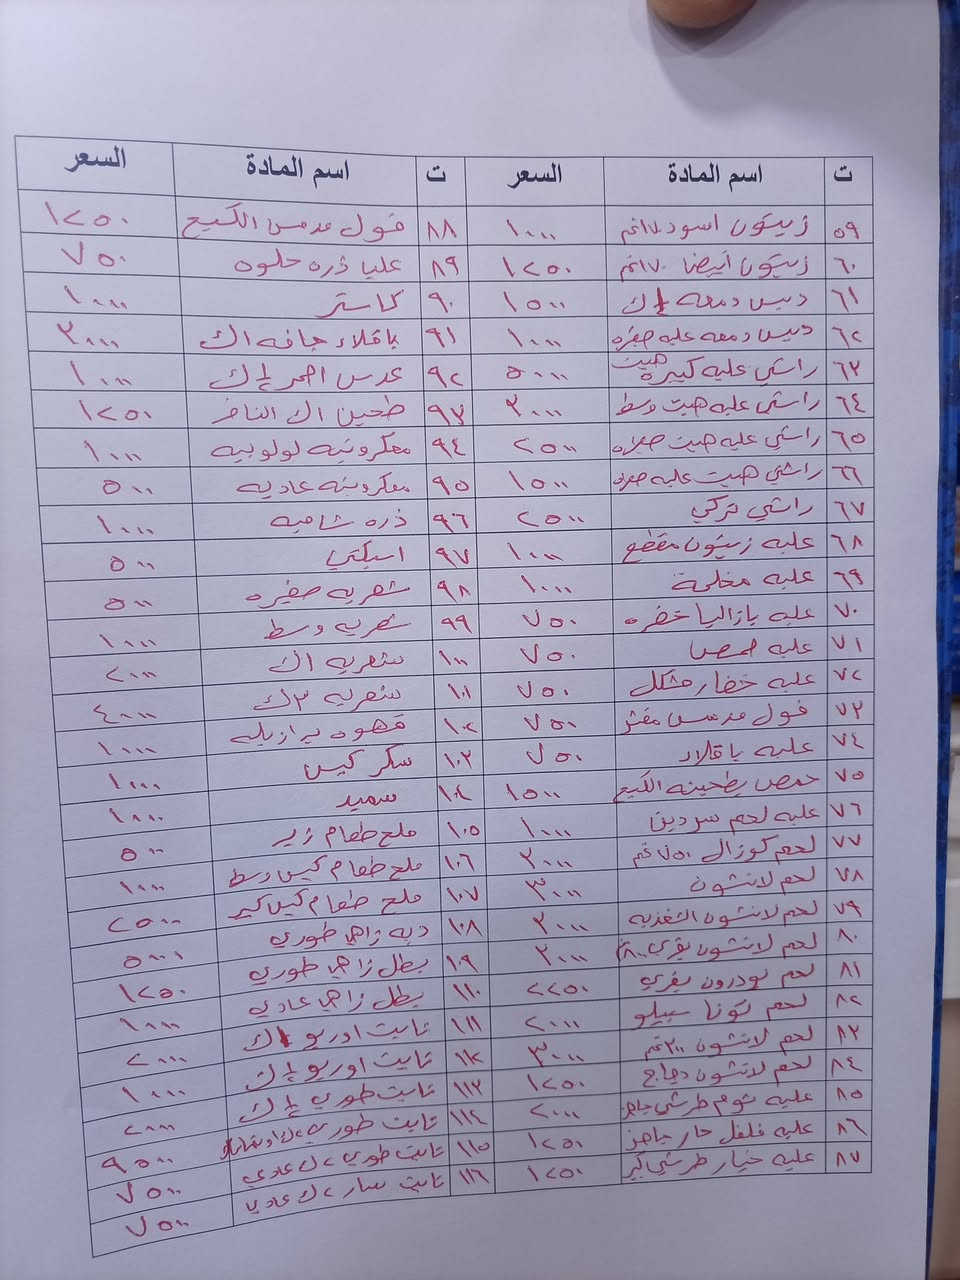 ت اسم المادة السعر ت اسم المادة السعر
٥٩ زيتون اسود ١٧٠غم ١٠٠٠ ٨٨ فول مدمس الكبيع ١٢٥٠
٦٠ زيتون ابيض ١٧٠غم ١٢٥٠ ٨٩ علبا ذره حلوه ٧٥٠
٦١ دبس دمعه ١ك ١٥٠٠ ٩٠ كاستر ١٠٠٠
٦٢ دبس دمعه علبه صغيره ١٠٠٠ ٩١ باقلاء جافه ١ك ٣٠٠٠
٦٣ راشي علبه كبيره هيت ٥٠٠٠ ٩٢ عدس احمر ك ١٠٠٠
٦٤ راشي علبه هيت وسط ٣٠٠٠ ٩٣ طحين ١ك ١٢٥٠
٦٥ راشي علبه هيت ٢٥٠٠ ٩٤ معكرونيه لولوبيه ١٠٠٠
٦٦ راشي هيت علبه ١٥٠٠ ٩٥ معكرونيه عاديه ٥٠٠
٦٧ راشي تركي ٢٥٠٠ ٩٦ ذره شاميه ١٠٠٠
٦٨ علبه زيتون مقطع ١٠٠٠ ٩٧ اسبكتي ٥٠٠
٦٩ علبه ١٠٠٠ ٩٨ شعريه صغيره ٥٠٠
٧٠ علبه بازاليا خضره ٧٥٠ ٩٩ شعريه وسط ١٠٠٠
٧١ علبه حمص ٧٥٠ ١٠٠ شعريه ١ك ٢٠٠٠
٧٢ علبه خضار مشكل ٧٥٠ ١٠١ شعريه ٣ك ٤٠٠٠
٧٣ فول مدمس مقشر ٧٥٠ ١٠٢ قهوه برازيليه ١٠٠٠
٧٤ علبه باقلاء ٧٥٠ ١٠٣ سكر كيس ١٠٠٠
٧٥ حمص بطحينه الكبيع ١٥٠٠ ١٠٤ سميد ١٠٠٠
٧٦ علبه لحم سردين ١٠٠٠ ١٠٥ ملح طعام زير ٥٠٠
٧٧ لحم كوزال ٧٥٠غم ٣٠٠٠ ١٠٦ ملح طعام كيس وسط ١٠٠٠
٧٨ لحم لانشون ٣٠٠٠ ١٠٧ ملح طعام كيس كبير ٢٥٠٠
٧٩ لحم لانشون التغذيه ٢٠٠٠ ١٠٨ دبه زاهي طوري ٥٠٠٠
٨٠ لحم لانشون بقري ٨٠٠غم ٣٠٠٠ ١٠٩ بطل زاهي طوري ١٢٥٠
٨١ لحم بودرون بقري ٢٢٥٠ ١١٠ بطل زاهي عادي ١٠٠٠
٨٢ لحم تونا سبيلو ٢٠٠٠ ١١١ تايت اوريو ١ك ٢٠٠٠
٨٣ لحم لانشون ٢٠٠غم ٣٠٠٠ ١١٢ تايت اوريو ك ١٠٠٠
٨٤ لحم لانشون دجاج ١٢٥٠ ١١٣ تايت طوري ك ٢٠٠٠
٨٥ علبه ثوم طرشي جاهز ٢٠٠٠ ١١٤ تايت طوري ٩٥٠٠
٨٦ علبه فلفل حار جاهز ١٢٥٠ ١١٥ تايت طوري ٢ك عادي ٧٥٠٠
٨٧ علبه خيار طرشي كبير ١٢٥٠ ١١٦ تايت سار ٢ك عادي ٧٥٠٠